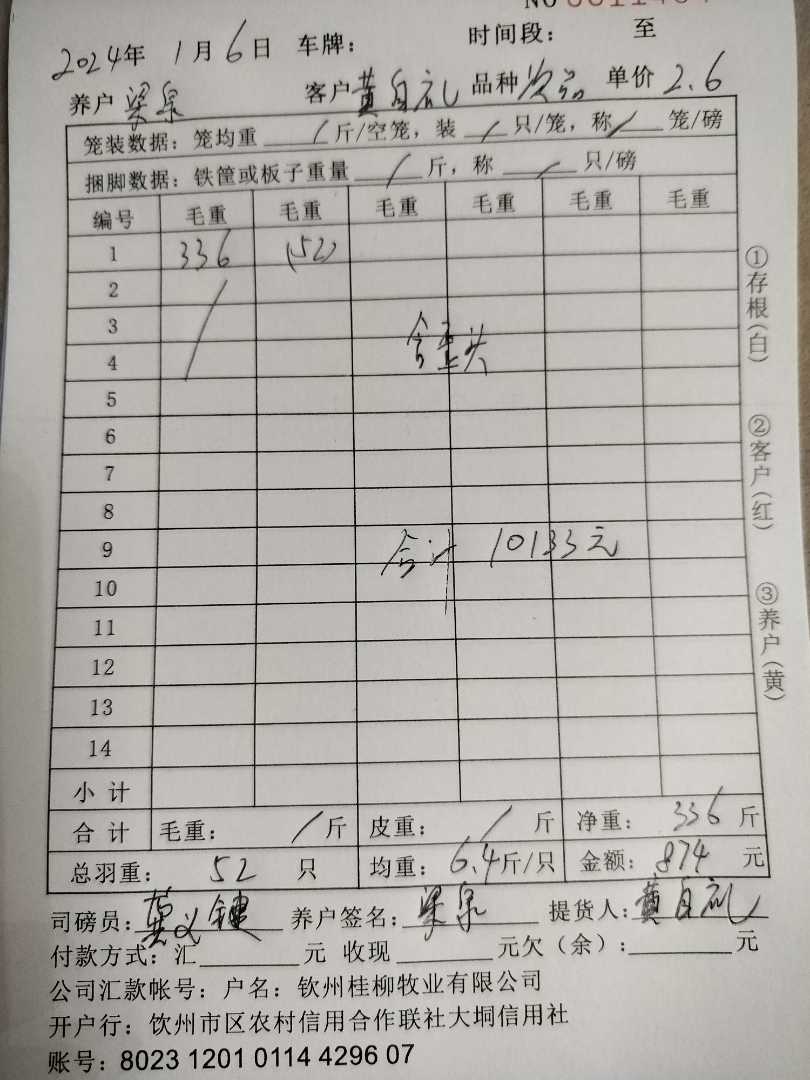 NO
2024年 1月6日 车牌: 时间段: 至
养户 梁泉 客户 黄自礼 品种 次品 单价 2.6
笼装数据: 笼均重 / 斤/空笼, 装 / 只/笼, 称 / 笼/磅
捆脚数据: 铁筐或板子重量 / 斤, 称 / 只/磅
编号 毛重 毛重 毛重 毛重 毛重 毛重
1 336 (52)
2
3
4
5
6
7
8
9 合计 10133元
10
11
12
13
14
小计
合计 毛重: / 斤 皮重: / 斤 净重: 336 斤
总羽重: 52 只 均重: 6.4斤/只 金额: 874 元
司磅员: 莫义键 养户签名: 梁泉 提货人: 黄自礼
付款方式: 汇 元 收现 元欠(余): 元
公司汇款帐号: 户名: 钦州桂柳牧业有限公司
开户行: 饮州市区农村信用合作联社大垌信用社
账号: 8023 1201 0114 4296 07
①存根(白)
②客户(红)
③养户(黄)